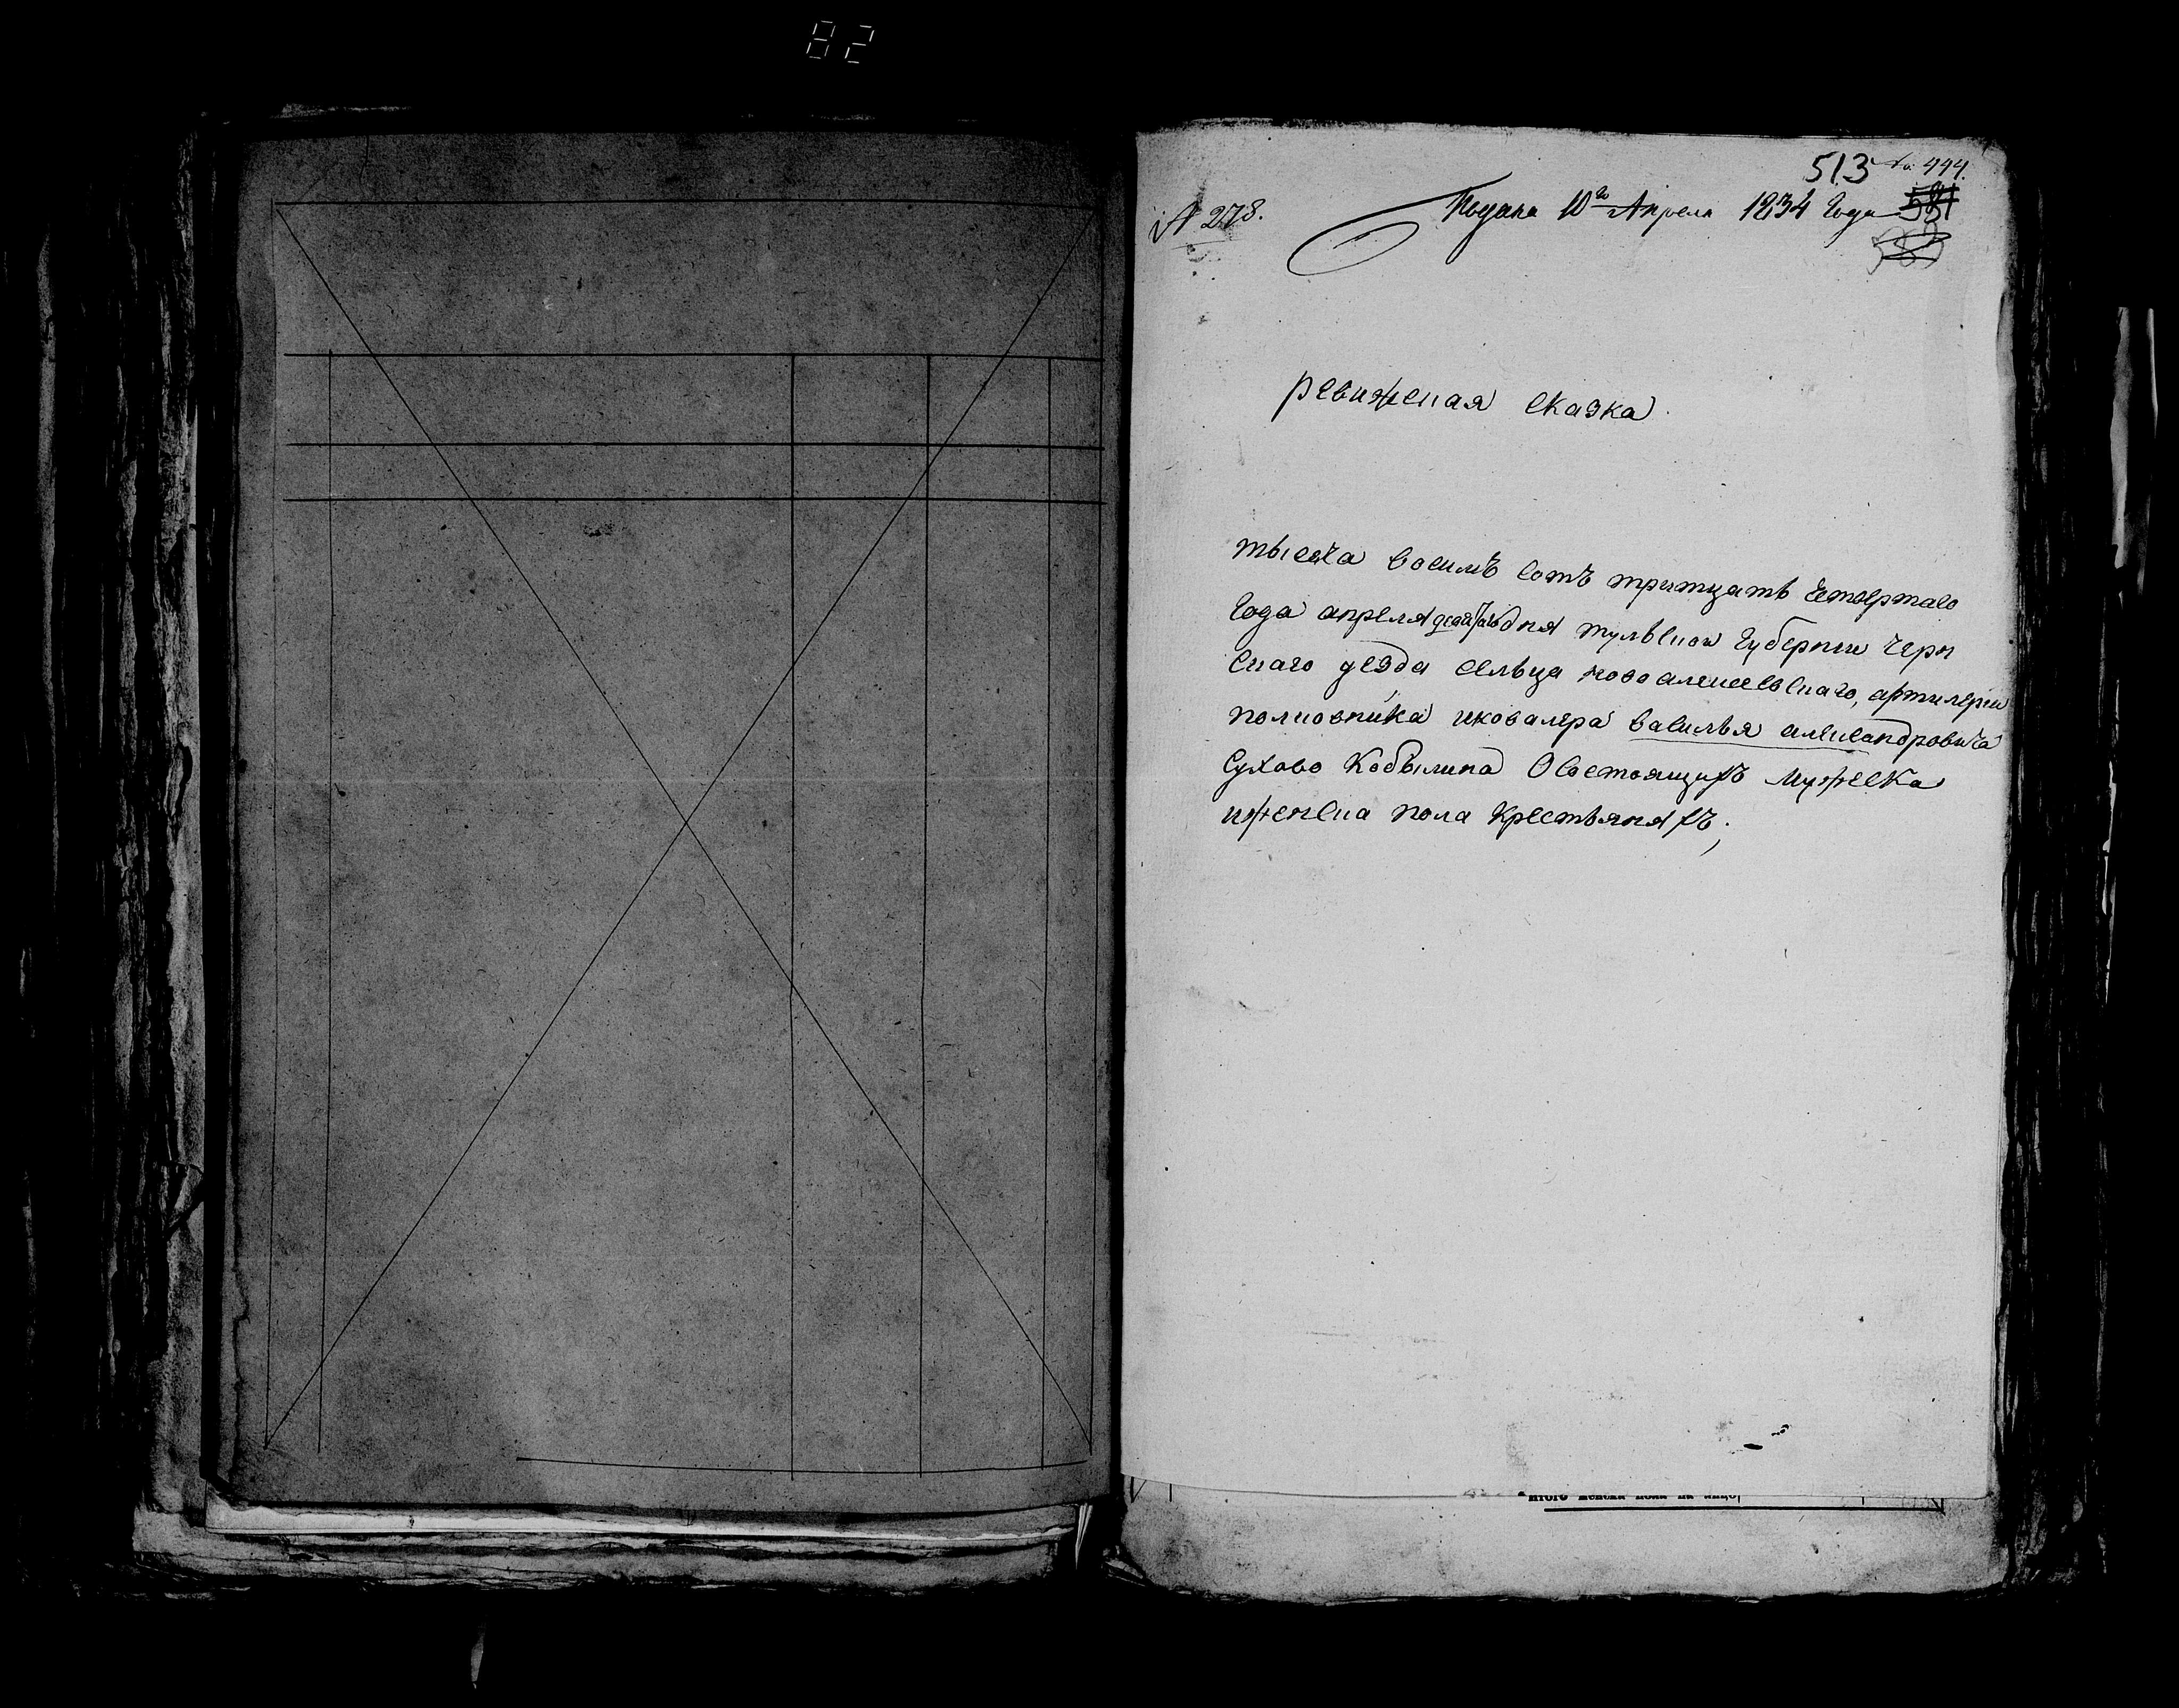 82
513 No. 444.
№ 278.
Подана 10го Апреля 1834 Года
ревижская сказка.
тысеча восимъ сотъ тритцать Четвертаго
Года апреля десятаго дня тульской Губернии черн
скаго уезда сельца новоалексеевскаго, артилерии
полковника икавалера василья александровича
Сухово Кобылина Осостоящихъ мужеска
иженска пола крестьянахъ;
итого женска пола на лицо